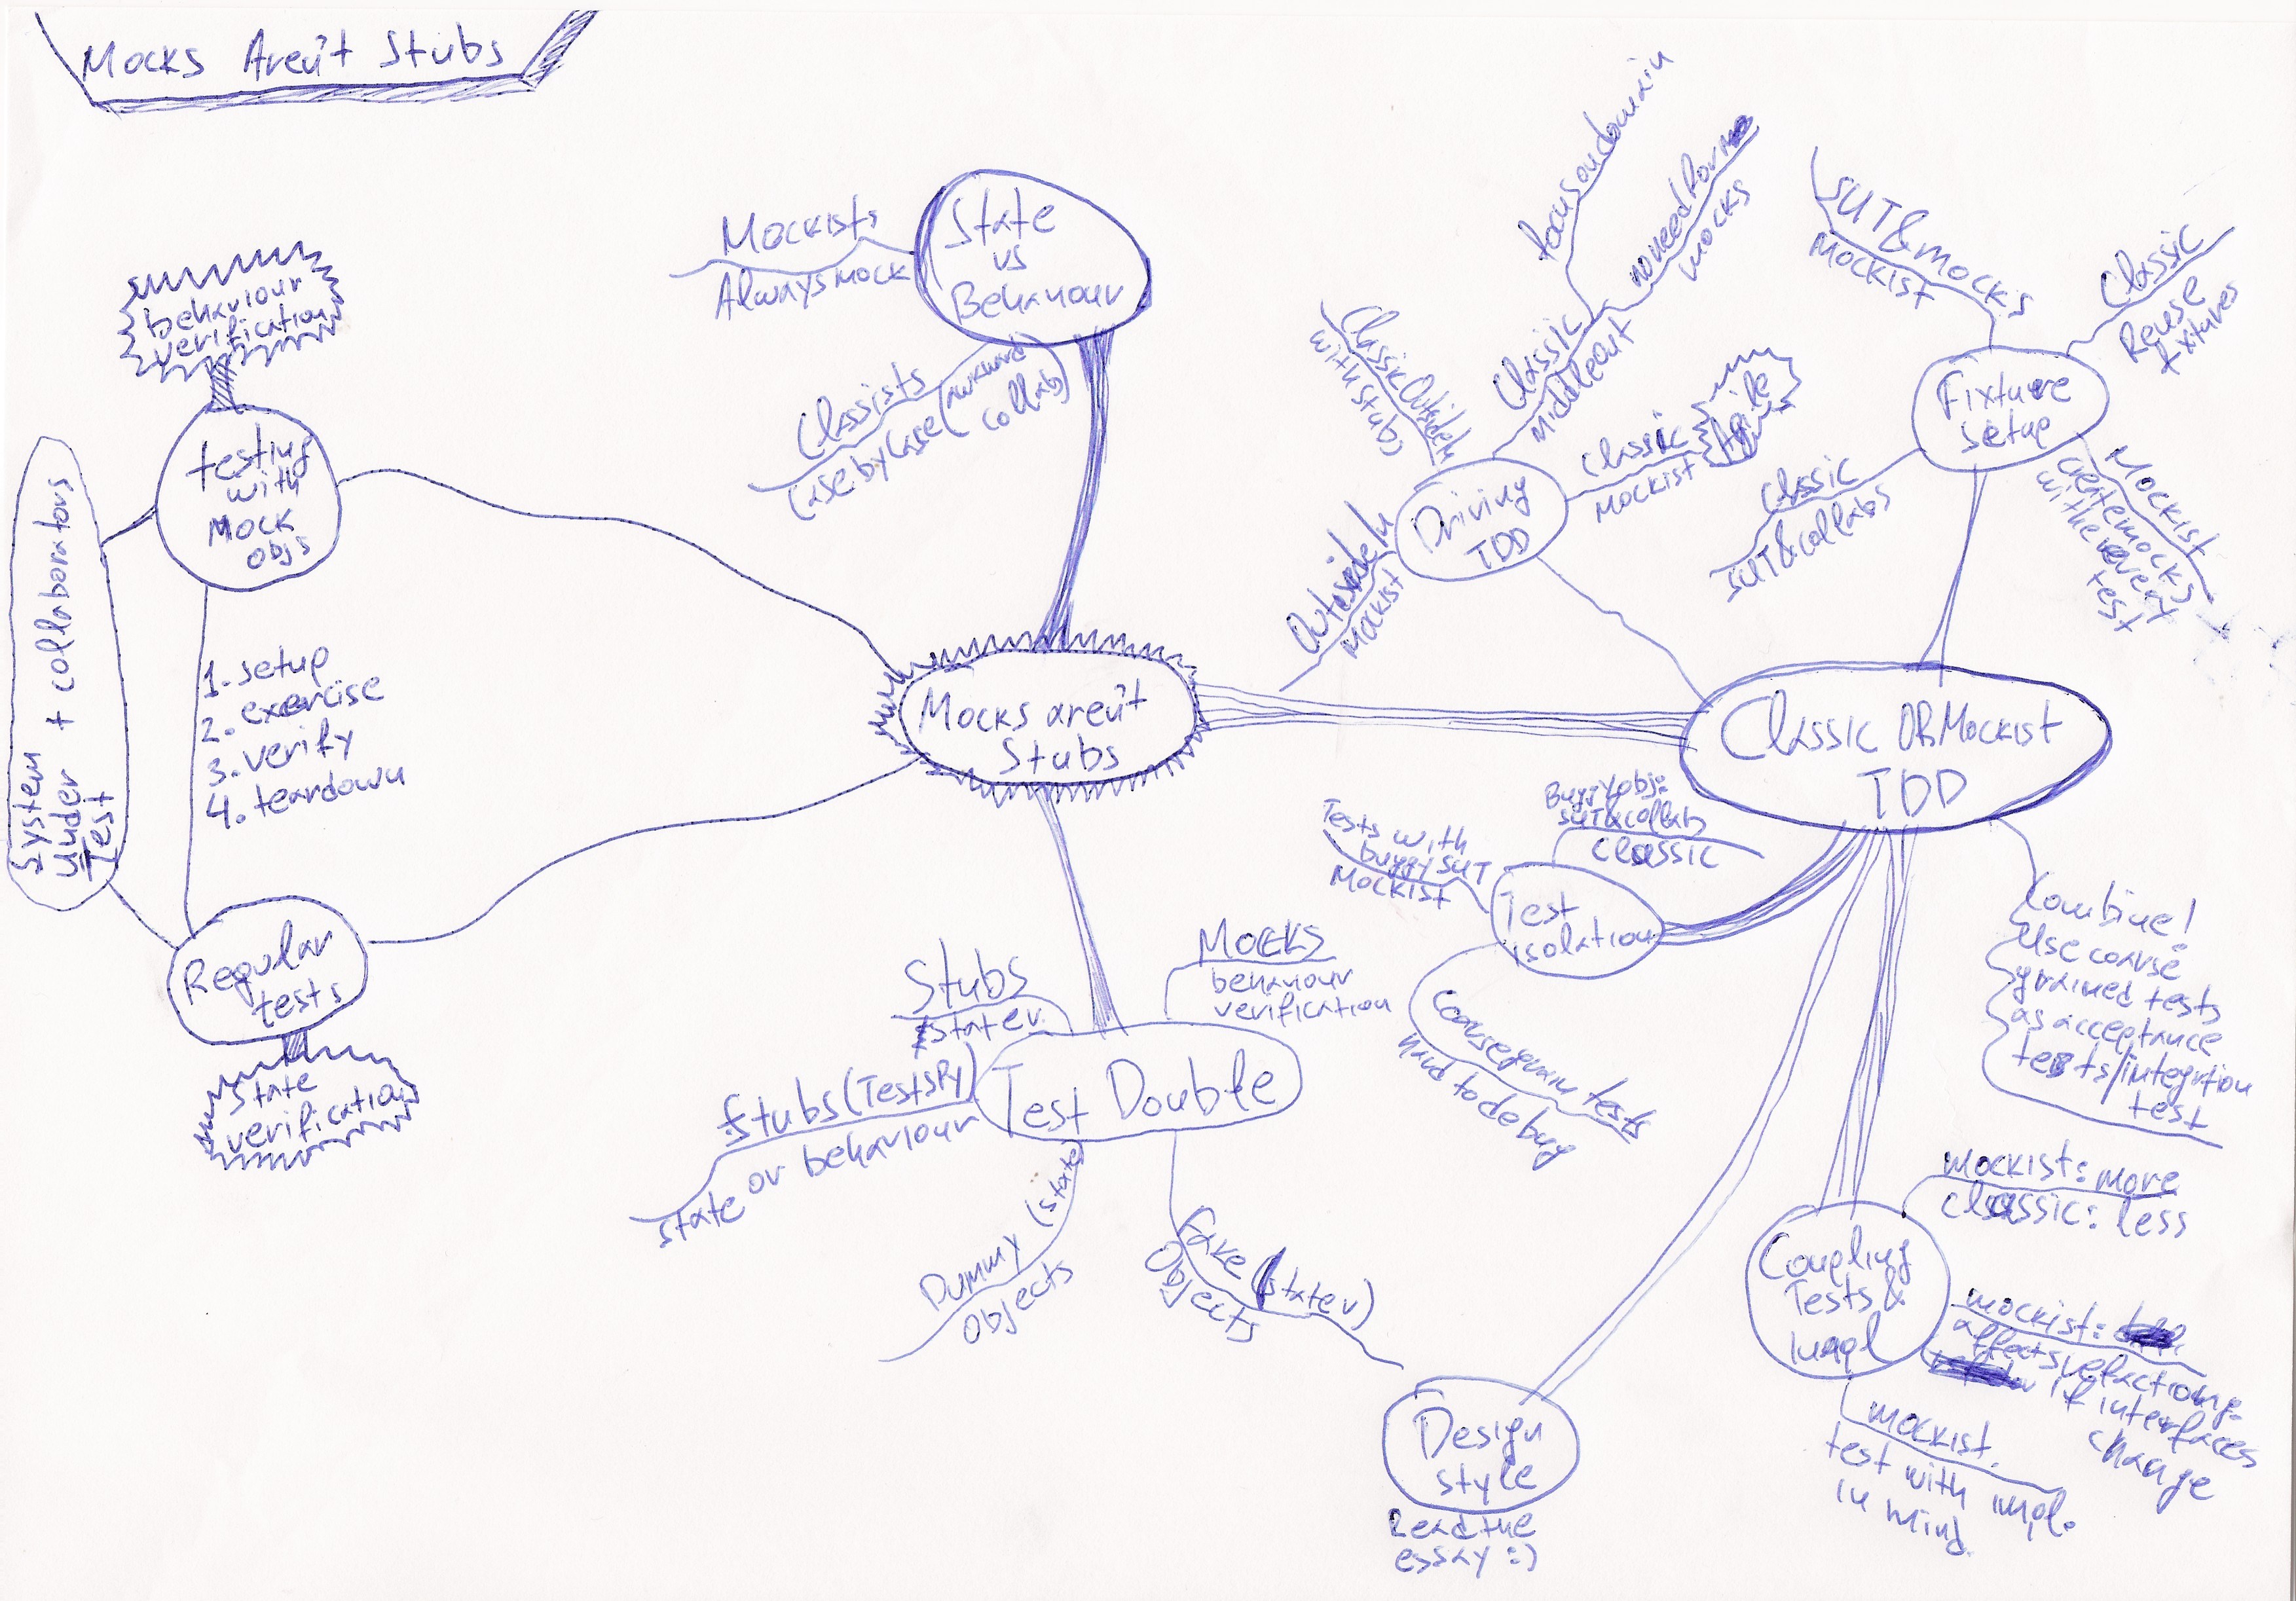 Mocks Aren't Stubs
behaviour
verification
testing
with
Mock
objs
System
Under
Test
+ collaborators
1. setup
2. exercise
3. verify
4. teardown
Regular
tests
state
verification
State
vs
Behaviour
Mockists
Always mock
Classists
Case by case (awkward
collab)
Mocks aren't
Stubs
Test Double
Stubs
state v.
Mocks
behaviour
verification
Stubs (Test Spy)
state or behaviour
Dummy (state)
Objects
Fake (state v)
Objects
Classic OR Mockist
TDD
Driving
TDD
Outside In
Mockist
Classic Outside In
with stubs
Classic
Middle out
focus on domain
no need for
mocks
Classic
Mockist
Agile
Fixture
setup
SUT & mocks
Mockist
Classic
Reuse
fixtures
Classic
SUT & collabs
Mockist
create mocks
with every
test
Test
isolation
Tests with
buggy SUT
Mockist
Buggy obj:
SUT & collab
Classic
Coarse grain tests
hard to debug
Combine!
Use coarse
grained tests
as acceptance
tests/integrtion
test
Coupling
Tests &
Impl
mockist: more
classic: less
mockist:
affects refactoring
if interfaces
change
mockist.
test with impl.
in mind.
Design
style
Read the
essay :)